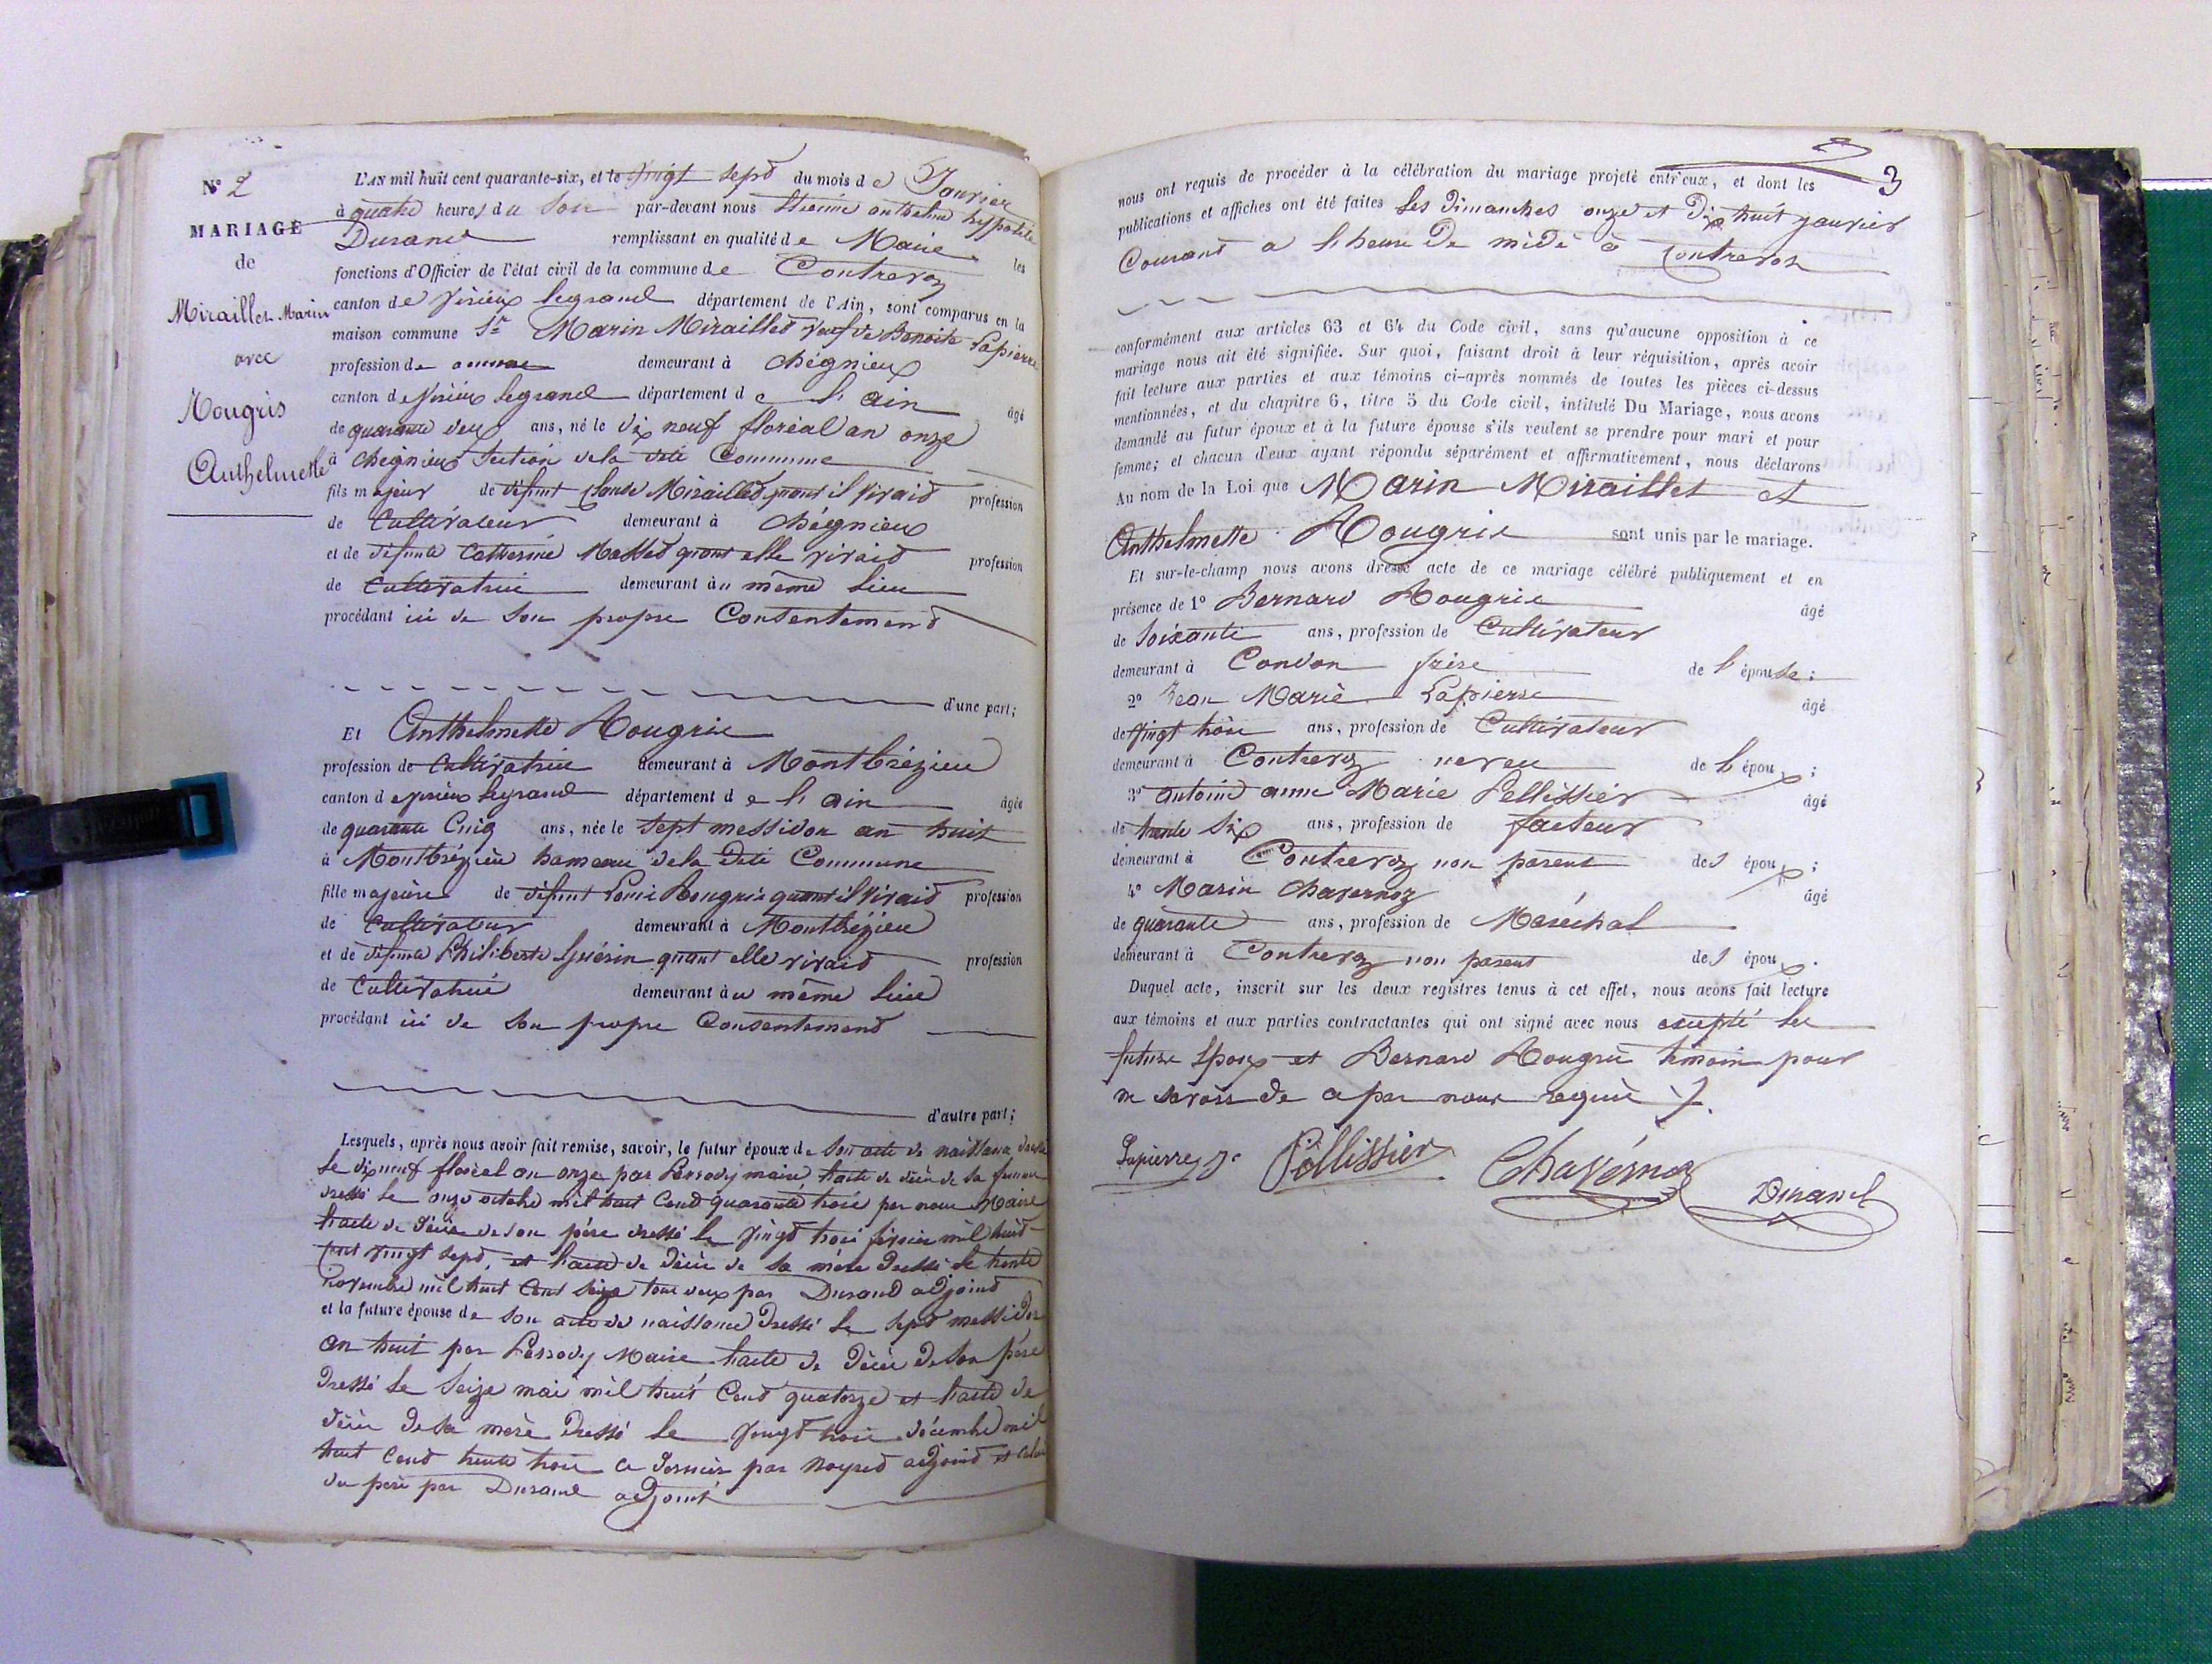 N° 2
MARIAGE
de
Miraillet Marin
avec
Rougris
Anthelmette
L'AN mil huit cent quarante-six, et le vingt sept du mois de Janvier
à quatre heures du Soir par-devant nous Etienne anthelme hyppolite
Durand remplissant en qualité de Maire les
fonctions d'Officier de l'état civil de la commune de Contrevoz
canton de virieux legrand département de l'Ain, sont comparus en la
maison commune Sr Marin Miraillet veuf de Benoite Lapierre
profession de demeurant à chégnieux
canton de virieux legrand département de l'ain âgé
de quarante deux ans, né le dix neuf floréal an onze
à chegnieux Section de la dite Commune
fils majeur de défunt Claude Miraillet quant il vivaid profession
de Cultivateur demeurant à chégnieux
et de défunte Catterine Masset quant elle vivaid profession
de Cultivatrice demeurant au même lieu
procédant ici de Son propre Consentement
d'une part;
Et Anthelmette Rougrie
profession de Cultivatrice demeurant à Montbrézieu
canton de virieux legrand département de l'ain âgée
de quarante Cinq ans, née le sept messidor an huit
à Montbrézieu hameau de la dite Commune
fille majeure de défunt Louis Rougrie quant il vivaid profession
de Cultivateur demeurant à Montbrézieu
et de défunte Philiberte Guérin quant elle vivaid profession
de Cultivatrice demeurant au même lieu
procédant ici de Son propre Consentement
d'autre part;
Lesquels, après nous avoir fait remise, savoir, le futur époux de Son acte de naissance dressé
le dix neuf floréal an onze par Perrody maire l'acte de décès de sa femme
dressé le onze octobre mil huit Cend quarante trois par nous Maire
l'acte de décès de son père dressé le vingt trois février mil huit
cent vingt sept, et l'acte de décès de sa mère dressé le trente
novembre mil huit Cent seize tous deux par Durand adjoind
et la future épouse de Son acte de naissance dressé le sept messidor
an huit par Perrody Maire l'acte de décès de son père
dressé le seize mai mil huit Cend quatorze et l'acte de
décès de sa mère dressé le vingt trois décembre mil
huit Cend trente trois ce dernier par Noyred adjoind et celui
du père par Durand adjoint
3
nous ont requis de procéder à la célébration du mariage projeté entr'eux, et dont les
publications et affiches ont été faites les Dimanches onze et Dix huit janvier
Courant a l'heure de midi à Contrevoz
conformément aux articles 63 et 64 du Code civil, sans qu'aucune opposition à ce
mariage nous ait été signifiée. Sur quoi, faisant droit à leur réquisition, après avoir
fait lecture aux parties et aux témoins ci-après nommés de toutes les pièces ci-dessus
mentionnées, et du chapitre 6, titre 5 du Code civil, intitulé Du Mariage, nous avons
demandé au futur époux et à la future épouse s'ils veulent se prendre pour mari et pour
femme; et chacun d'eux ayant répondu séparément et affirmativement, nous déclarons
Au nom de la Loi que Marin Miraillet et
Anthelmette Rougrie sont unis par le mariage.
Et sur-le-champ nous avons dressé acte de ce mariage célébré publiquement et en
présence de 1° Bernard Rougrie âgé
de Soixante ans, profession de Cultivateur
demeurant à Condon frère de l'épouse;
2° Jean Marie Lapierre âgé
de vingt trois ans, profession de Cultivateur
demeurant à Contrevoz neveu de l'époux;
3° antoine anne Marie Pellissier âgé
de trente Six ans, profession de facteur
demeurant à Contrevoz non parent des époux;
4° Marin Chavernoz âgé
de quarante ans, profession de Maréchal
demeurant à Contrevoz non parent des époux.
Duquel acte, inscrit sur les deux registres tenus à cet effet, nous avons fait lecture
aux témoins et aux parties contractantes qui ont signé avec nous excepté les
future Epoux et Bernard Rougrie témoin pour
ne savoir de a par nous requis
Lapierre Pellissier Chavérnoz Durand